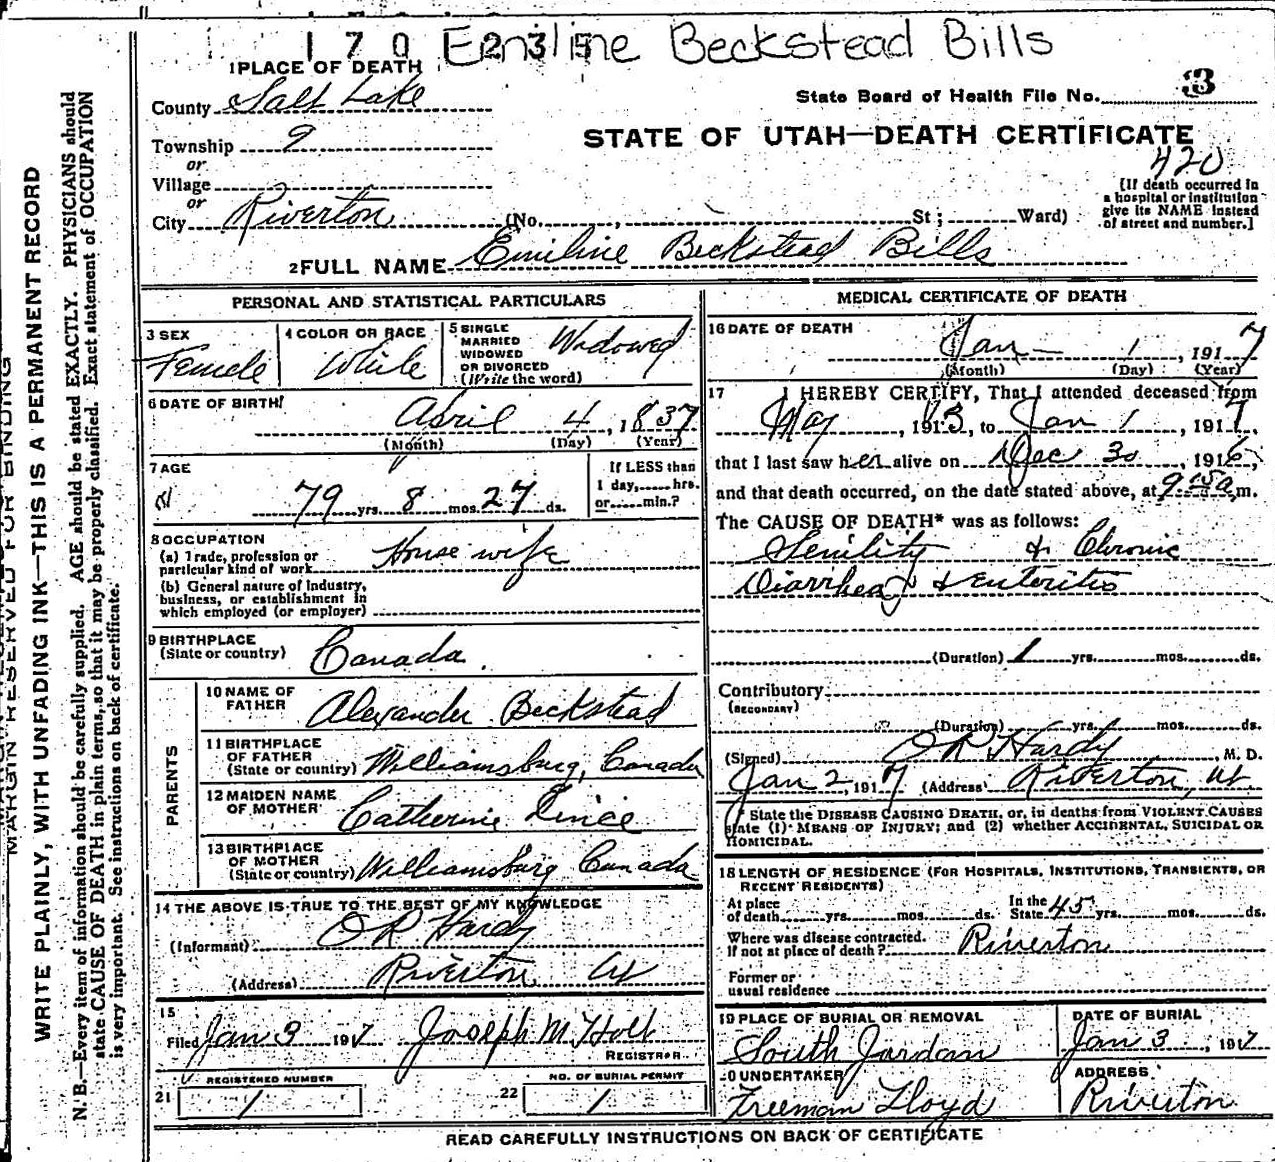 170 235 Emiline Beckstead Bills
1 PLACE OF DEATH
County Salt Lake
State Board of Health File No. 3
STATE OF UTAH—DEATH CERTIFICATE
Township 9
or
Village
or
City Riverton (No. St; Ward)
420
[If death occurred in
a hospital or institution
give its NAME instead
of street and number.]
2 FULL NAME Emiline Beckstead Bills
PERSONAL AND STATISTICAL PARTICULARS
3 SEX
Female
4 COLOR OR RACE
White
5 SINGLE
MARRIED
WIDOWED
OR DIVORCED
(Write the word)
Widowed
6 DATE OF BIRTH
April 4, 1837
(Month) (Day) (Year)
7 AGE
79 yrs. 8 mos. 27 ds.
If LESS than
1 day, hrs.
or min.?
8 OCCUPATION
(a) Trade, profession or
particular kind of work House wife
(b) General nature of industry,
business, or establishment in
which employed (or employer)
9 BIRTHPLACE
(State or country) Canada
PARENTS
10 NAME OF
FATHER Alexander Beckstead
11 BIRTHPLACE
OF FATHER
(State or country) Williamsburg, Canada
12 MAIDEN NAME
OF MOTHER Catherine Lince
13 BIRTHPLACE
OF MOTHER
(State or country) Williamsburg Canada
14 THE ABOVE IS TRUE TO THE BEST OF MY KNOWLEDGE
(Informant) O R Hardy
(Address) Riverton, Ut
15
Filed Jan 3 1917 Joseph M Holt
REGISTRAR
21 REGISTERED NUMBER
1
22 NO. OF BURIAL PERMIT
1
MEDICAL CERTIFICATE OF DEATH
16 DATE OF DEATH
Jan 1, 1917
(Month) (Day) (Year)
17 I HEREBY CERTIFY, That I attended deceased from
May, 1913, to Jan 1, 1917
that I last saw her alive on Dec 30, 1916,
and that death occurred, on the date stated above, at 9 50 a m.
The CAUSE OF DEATH* was as follows:
Senility & Chronic
Diarrhea & enteritis
(Duration) 1 yrs. mos. ds.
Contributory
(SECONDARY)
(Duration) yrs. mos. ds.
(Signed) O R Hardy, M. D.
Jan 2, 1917 (Address) Riverton, Ut
State the DISEASE CAUSING DEATH, or, in deaths from VIOLENT CAUSES
state (1) MEANS OF INJURY; and (2) whether ACCIDENTAL, SUICIDAL OR
HOMICIDAL.
18 LENGTH OF RESIDENCE (FOR HOSPITALS, INSTITUTIONS, TRANSIENTS, OR
RECENT RESIDENTS)
At place
of death yrs. mos. ds.
In the
State 45 yrs. mos. ds.
Where was disease contracted.
If not at place of death? Riverton
Former or
usual residence
19 PLACE OF BURIAL OR REMOVAL
South Jordan
DATE OF BURIAL
Jan 3, 1917
20 UNDERTAKER
Freeman Lloyd
ADDRESS
Riverton
READ CAREFULLY INSTRUCTIONS ON BACK OF CERTIFICATE
MARGIN RESERVED FOR BINDING
WRITE PLAINLY, WITH UNFADING INK—THIS IS A PERMANENT RECORD
N. B.—Every item of information should be carefully supplied. AGE should be stated EXACTLY. PHYSICIANS should
state CAUSE OF DEATH in plain terms, so that it may be properly classified. Exact statement of OCCUPATION
is very important. See instructions on back of certificate.